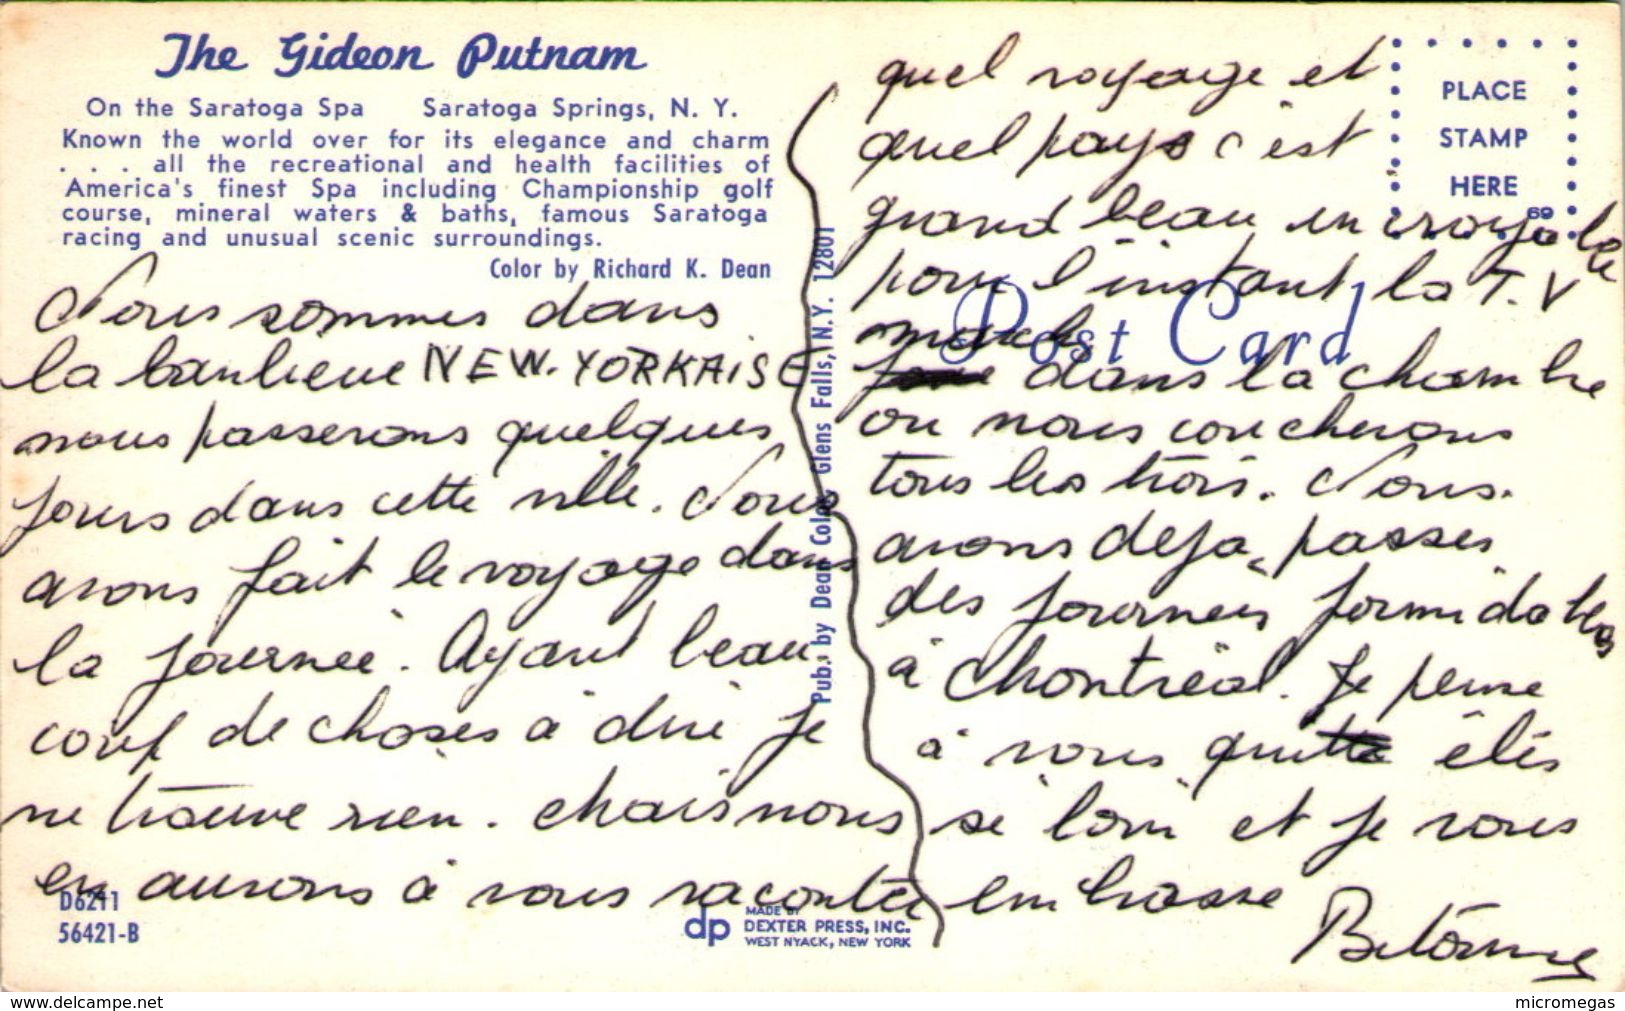 The Gideon Putnam
On the Saratoga Spa Saratoga Springs, N. Y.
Known the world over for its elegance and charm
. . . all the recreational and health facilities of
America's finest Spa including Championship golf
course, mineral waters & baths, famous Saratoga
racing and unusual scenic surroundings.
Color by Richard K. Dean
Nous sommes dans
la banlieue NEW-YORKAISE
nous passerons quelques
jours dans cette ville. Nous
avons fait le voyage dans
la journée. Ayant beau
coup de choses à dire je
ne trouve rien. Mais nous
en aurons à vous raconter
D6211
56421-B
dp MADE BY
DEXTER PRESS, INC.
WEST NYACK, NEW YORK
Pub. by Dean Color, Glens Falls, N.Y. 12801
PLACE
STAMP
HERE
69
Post Card
quel voyage et
quel pays c'est
grand beau incroyable
pour l'instant la T.V
marche
dans la chambre
ou nous coucherons
tous les trois. Nous
avons deja passés
des journées formidables
à Montréal. Je pense
à vous qui êtes
si loin et je vous
embrasse
www.delcampe.net
micromegas